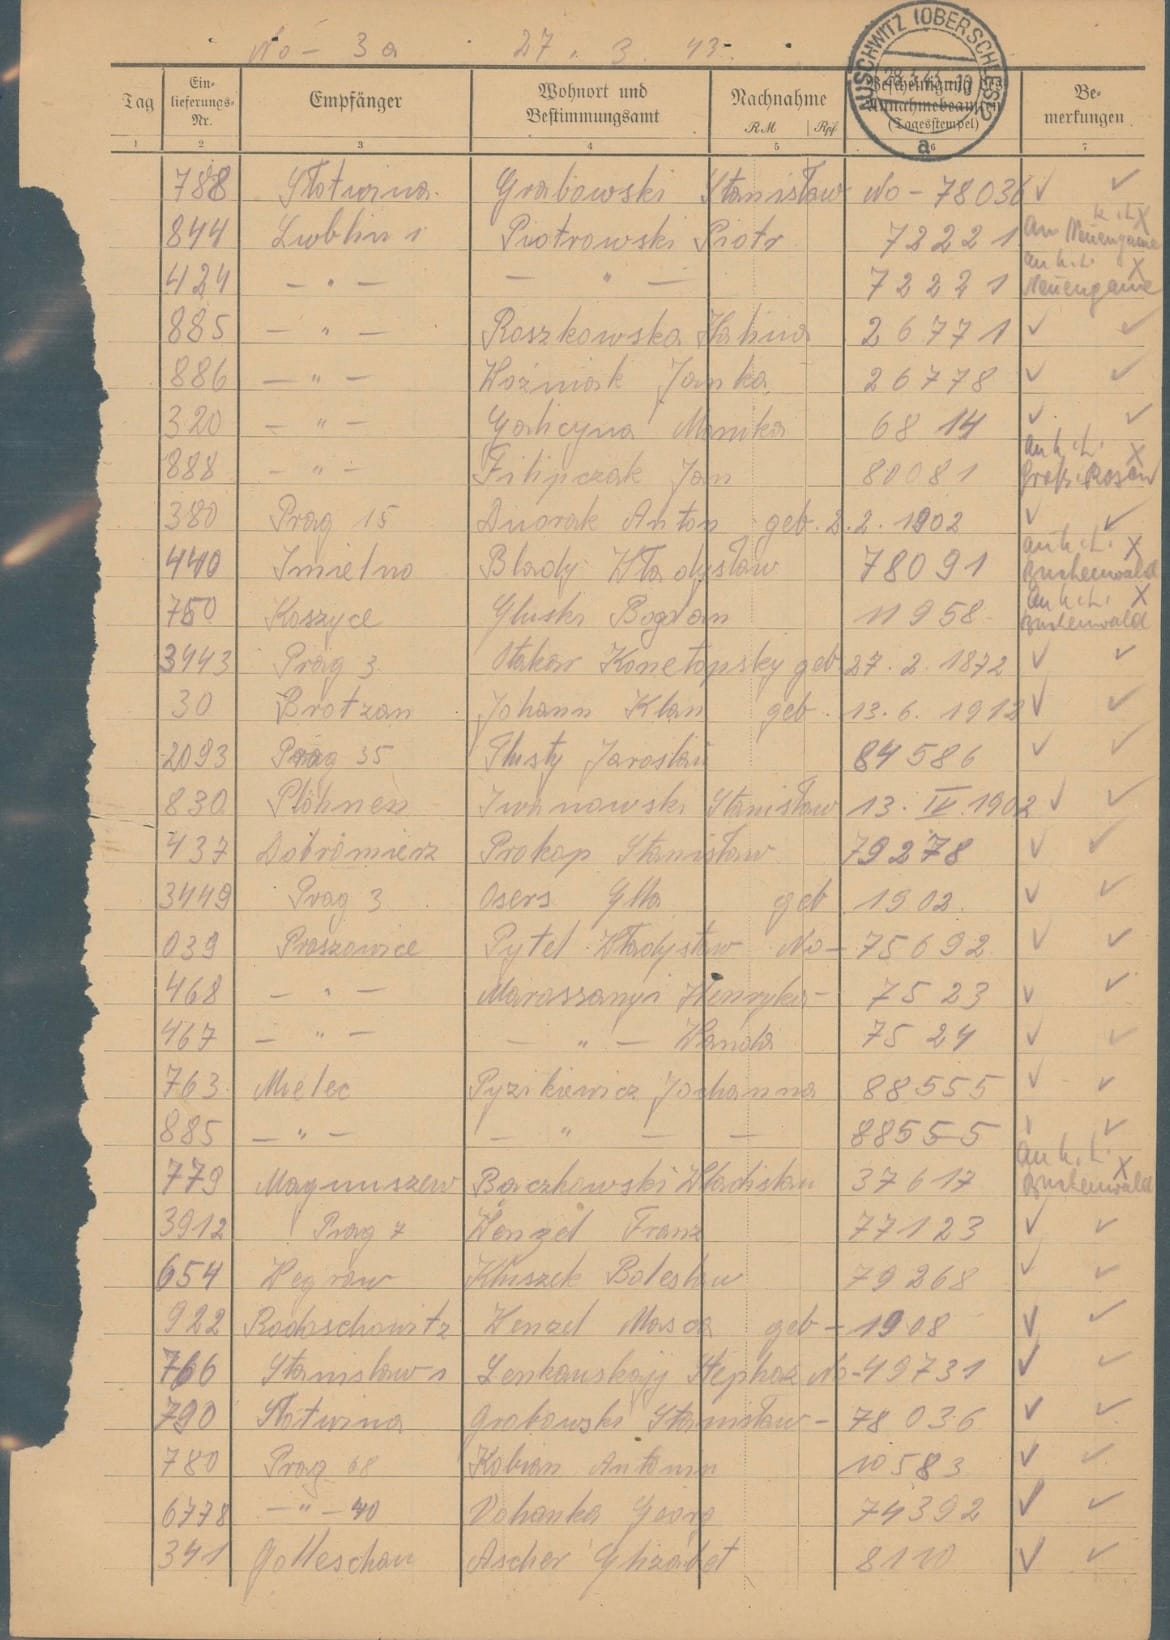 No - 3a 27. 3. 43.
AUSCHWITZ (OBERSCHLES) 2
28.3.43.-10
a
Tag
Ein-
lieferungs-
Nr.
Empfänger
Wohnort und
Bestimmungsamt
Nachnahme
RM Rpf
Bescheinigung des
Annahmebeamten
(Tagesstempel)
Be-
merkungen
1 2 3 4 5 6 7
788 Slotwina. Grabowski Stanisław No - 78036 ✓ ✓
844 Lublin 1 Piotrowski Piotr 72221 an K.L. Neuengame X
424 - " - - " - 72221 an K.L. Neuengame X
885 - " - Roszkowska Halina 26771 ✓ ✓
886 - " - Woźniak Janka 26778 ✓ ✓
320 - " - Galicyna Marika 6814 ✓ ✓
888 - " - Filipczak Jan 80081 an K.L. Groß-Rosen X
380 Prag 15 Dvorak Anton geb. 2.2.1902 ✓ ✓
440 Imielno Blady Władysław 78091 an K.L. Buchenwald X
750 Koszyce Gluski Bogdan 11958 an K.L. Buchenwald X
3443 Prag 3 Otakar Konetopsky geb 27.2.1872 ✓ ✓
30 Brotzan Johann Klan geb. 13.6.1912 ✓ ✓
2093 Prag 35 Tlusty Jaroslav 84586 ✓ ✓
830 Plöhnen Iwanowski Stanisław 13. IV. 1902 ✓ ✓
437 Dobromierz Prokop Stanisław 79278 ✓ ✓
3449 Prag 3 Osers geb 1902 ✓ ✓
039 Proszowice Pytel Władysław No - 75692 ✓ ✓
468 - " - Henryka - 7523 ✓ ✓
467 - " - - " - Wanda 7524 ✓ ✓
763 Mielec Pyzikiewicz Jochanna 88555 ✓ ✓
885 - " - - " - - 88555 ✓ ✓
779 Magnuszew Baczkowski Wladislau 37617 an K.L. Buchenwald X
3912 Prag 7 Wenzel Franz 77123 ✓ ✓
654 Wegrow Kluszek Boleslaw 79268 ✓ ✓
922 Radoschowitz Wenzel geb - 1908 ✓ ✓
766 Stanislaw 1 No - 49731 ✓ ✓
790 Slotwina Grabowski Stanisław - 78036 ✓ ✓
780 Prag 68 Kobian Antonin 10583 ✓ ✓
6778 - " - 40 Vohanka Georg 74392 ✓ ✓
341 Golleschau Ascher Elizabet 8110 ✓ ✓